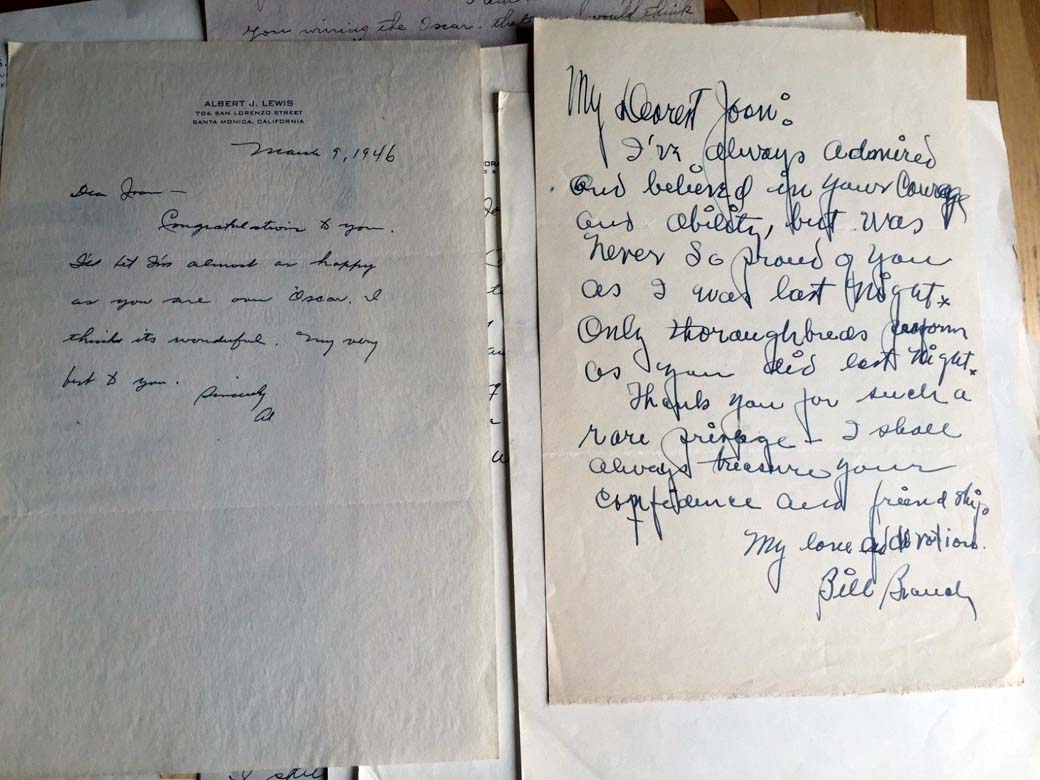 you wining the Oscar. that would think
ALBERT J. LEWIS
706 SAN LORENZO STREET
SANTA MONICA, CALIFORNIA
March 9, 1946
Dear Joan —
Congratulations to you.
I'll bet I'm almost as happy
as you are over Oscar. I
think its wonderful. My very
best to you.
Sincerely
Al
My Dearest Joan:
I've always admired
and believed in your Courage
and ability, but was
never so proud of you
as I was last Night.
Only thoroughbreds perform
as you did last Night.
Thank you for such a
rare privege - I shall
always treasure your
confidence and friendship
My love and devotion.
Bill
I still